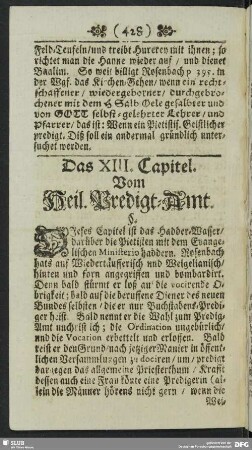 (428)
Feld-Teufeln/und treibt Hurerey mit ihnen; so
richtet man die Hanne wieder auf / und dienet
Baalim. So weit billigt Rosenbach p 395. in
der Wgf. das Kirchen-Gehen/wenn ein recht-
schaffener / wiedergeborner / durchgebro-
chener mit dem H Salb Oele gesalbter und
von GOTT selbst-gelehrter Lehrer/und
Pfarrer/das ist: Wenn ein Pietistis. Geistlicher
predigt. Diß soll ein andermal gründlich unter-
suchet werden.
Das XIII. Capitel.
Vom
Heil. Predigt-Amt.
§.
Dieses Capitel ist das Hadder-Wasser/
darüber die Pietisten mit dem Evange-
lischen Ministerio haddern. Rosenbach
hats auf Wiedertäufferisch und Weigelianisch/
hinten und forn angegriffen und bombardirt.
Denn bald stürmt er loß auf die vocirende O-
brigkeit; bald auf die beruffene Diener des neuen
Bundes selbsten / die er nur Buchstabens-Predi-
ger heist. Bald nennt er die Wahl zum Predig-
Amt unchristlich; die Ordination ungebührlich/
und die Vocation erbettelt und erloffen. Bald
reist er den Grund/nach jetziger Manier in öffent-
lichen Versammlungen zu dociren / um / prediget
dargegen das allgemeine Priesterthum / Krafft
dessen auch eine Frau könte eine Predigerin (al-
lein die Männer hörens nicht gern / wenn die
Wei-
SLUB
DFG